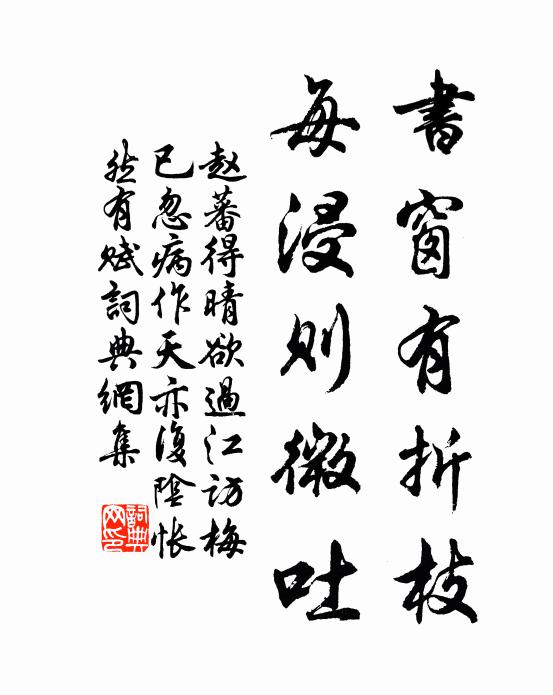 書窗有折枝
每浸則微吐
赵蕃得晴欲過江访梅
已忽病作天亦復陰悵
然有赋詞典網集
詞典
网印